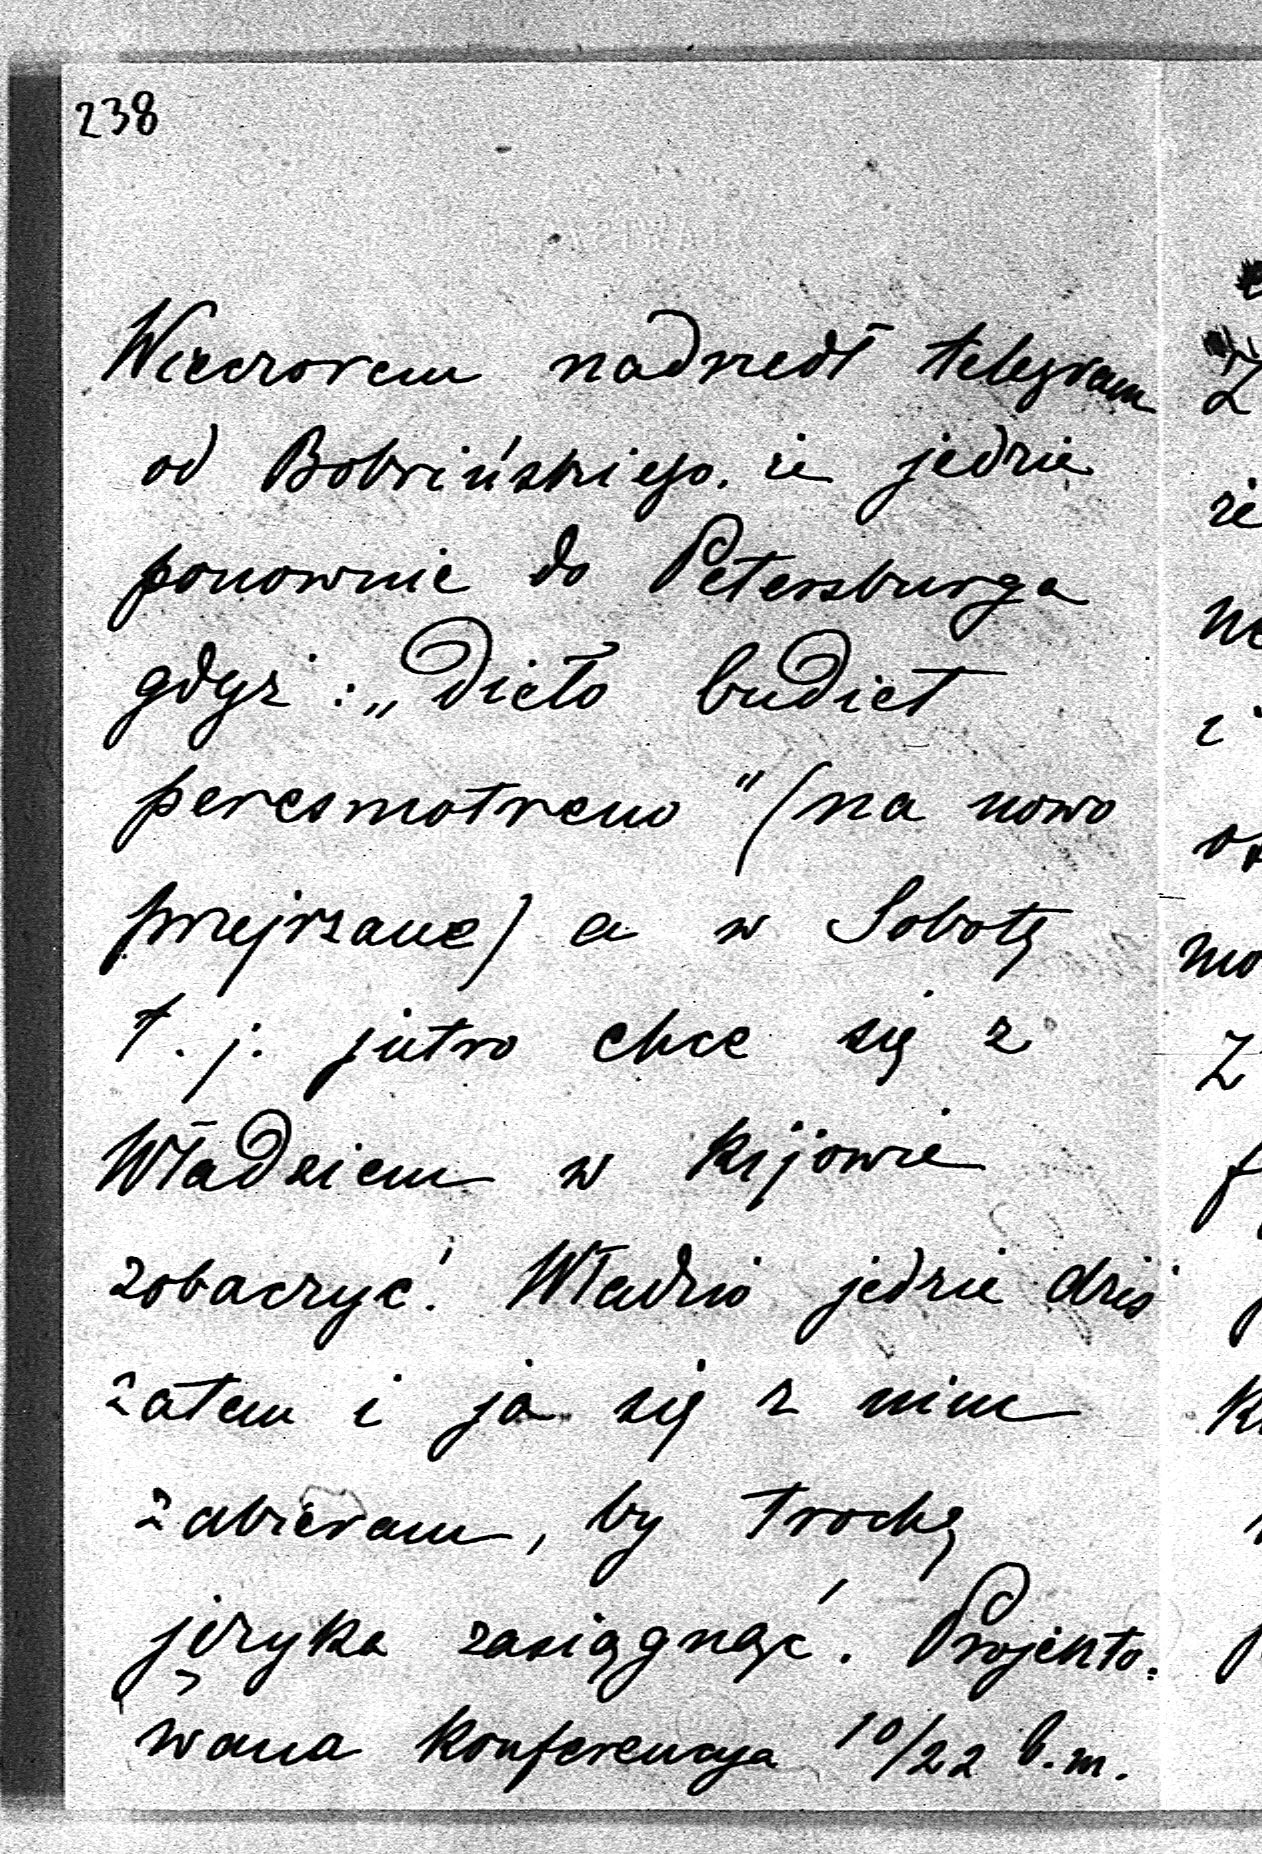 238
Wieczorem nadszedł telegram
od Bobrińskiego. że jedzie
ponownie do Petersburga
gdyż: „Dieło budiet
peresmotreno" (na nowo
przejrzane) a w Sobotę
t. j. jutro chce się z
Władziem w Kijowie
zobaczyć. Władzio jedzie dziś
zatem i ja się z nim
zabieram, by trochę
języka zasiągnąć. Projekto=
wana Konferencya 10/22 b.m.